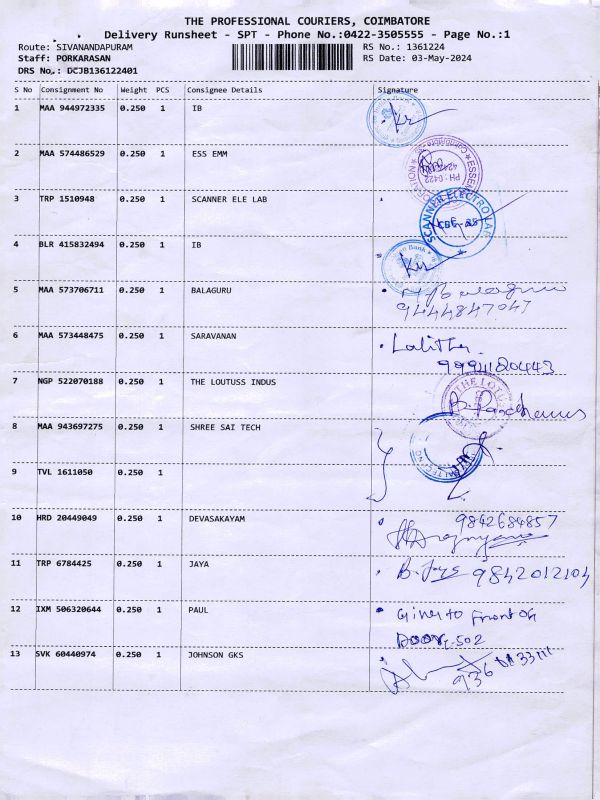 THE PROFESSIONAL COURIERS, COIMBATORE
Delivery Runsheet - SPT - Phone No.:0422-3505555 - Page No.:1
Route: SIVANANDAPURAM RS No.: 1361224
Staff: PORKARASAN RS Date: 03-May-2024
DRS No.: DCJB136122401
S No Consignment No Weight PCS Consignee Details Signature
1 MAA 944972335 0.250 1 IB
2 MAA 574486529 0.250 1 ESS EMM
PH : 0422
3 TRP 1510948 0.250 1 SCANNER ELE LAB
SCANNER ELECTRO LAB
4 BLR 415832494 0.250 1 IB
5 MAA 573706711 0.250 1 BALAGURU
9444847047
6 MAA 573448475 0.250 1 SARAVANAN Lalitha
9994120443
7 NGP 522070188 0.250 1 THE LOUTUSS INDUS
THE LOTUS
8 MAA 943697275 0.250 1 SHREE SAI TECH
9 TVL 1611050 0.250 1
10 HRD 20449049 0.250 1 DEVASAKAYAM 9842684857
11 TRP 6784425 0.250 1 JAYA B. Jaya 9842012104
12 IXM 506320644 0.250 1 PAUL Given to front of
Door-502
13 SVK 60440974 0.250 1 JOHNSON GKS